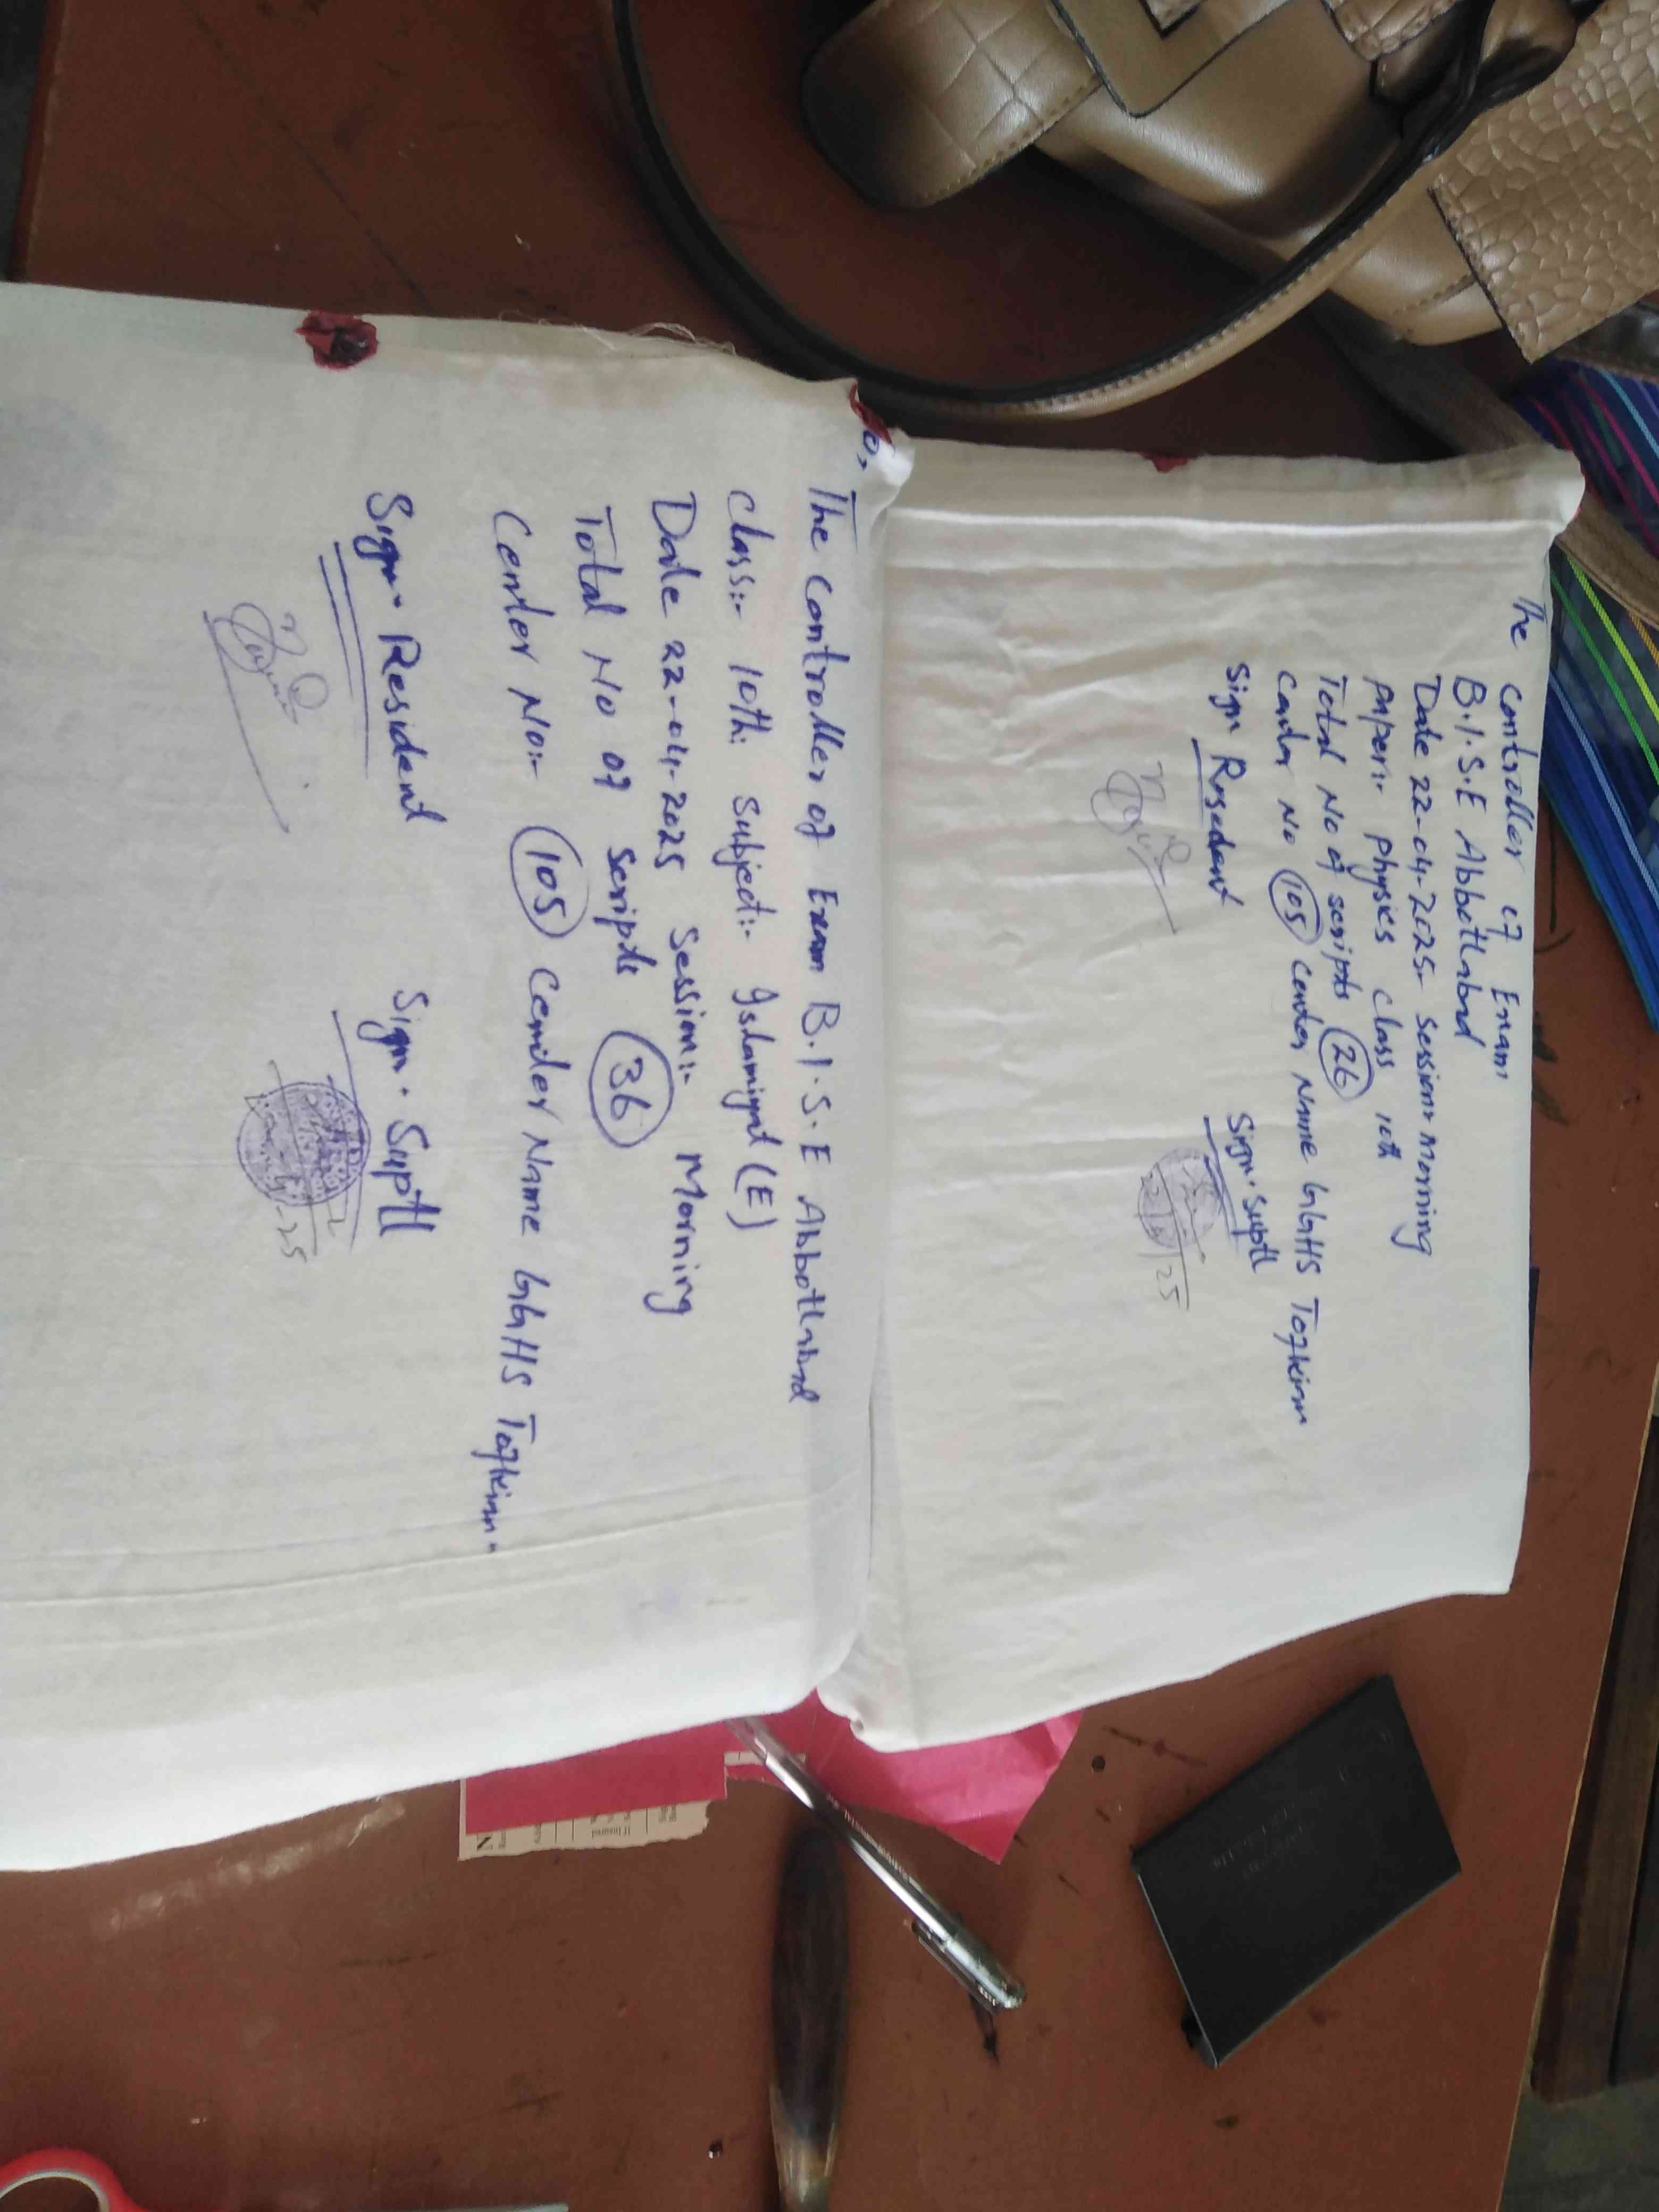 The Controller of Exam
B.I.S.E Abbottabad
Date 22-04-2025 Session Morning
Paper:- Physics Class 10th
Total No of scripts 26
Center No 105 Center Name GGHS
Sign Resedent Sign. Suptl
25
To, The Controller of Exam B.I.S.E Abbottabad
Class:- 10th Subject:- Islamiyat (E)
Date 22-04-2025 Session:- Morning
Total No of Scripts 36
Center No:- 105 Center Name GGHS
Sign. Resident Sign. Suptl
25